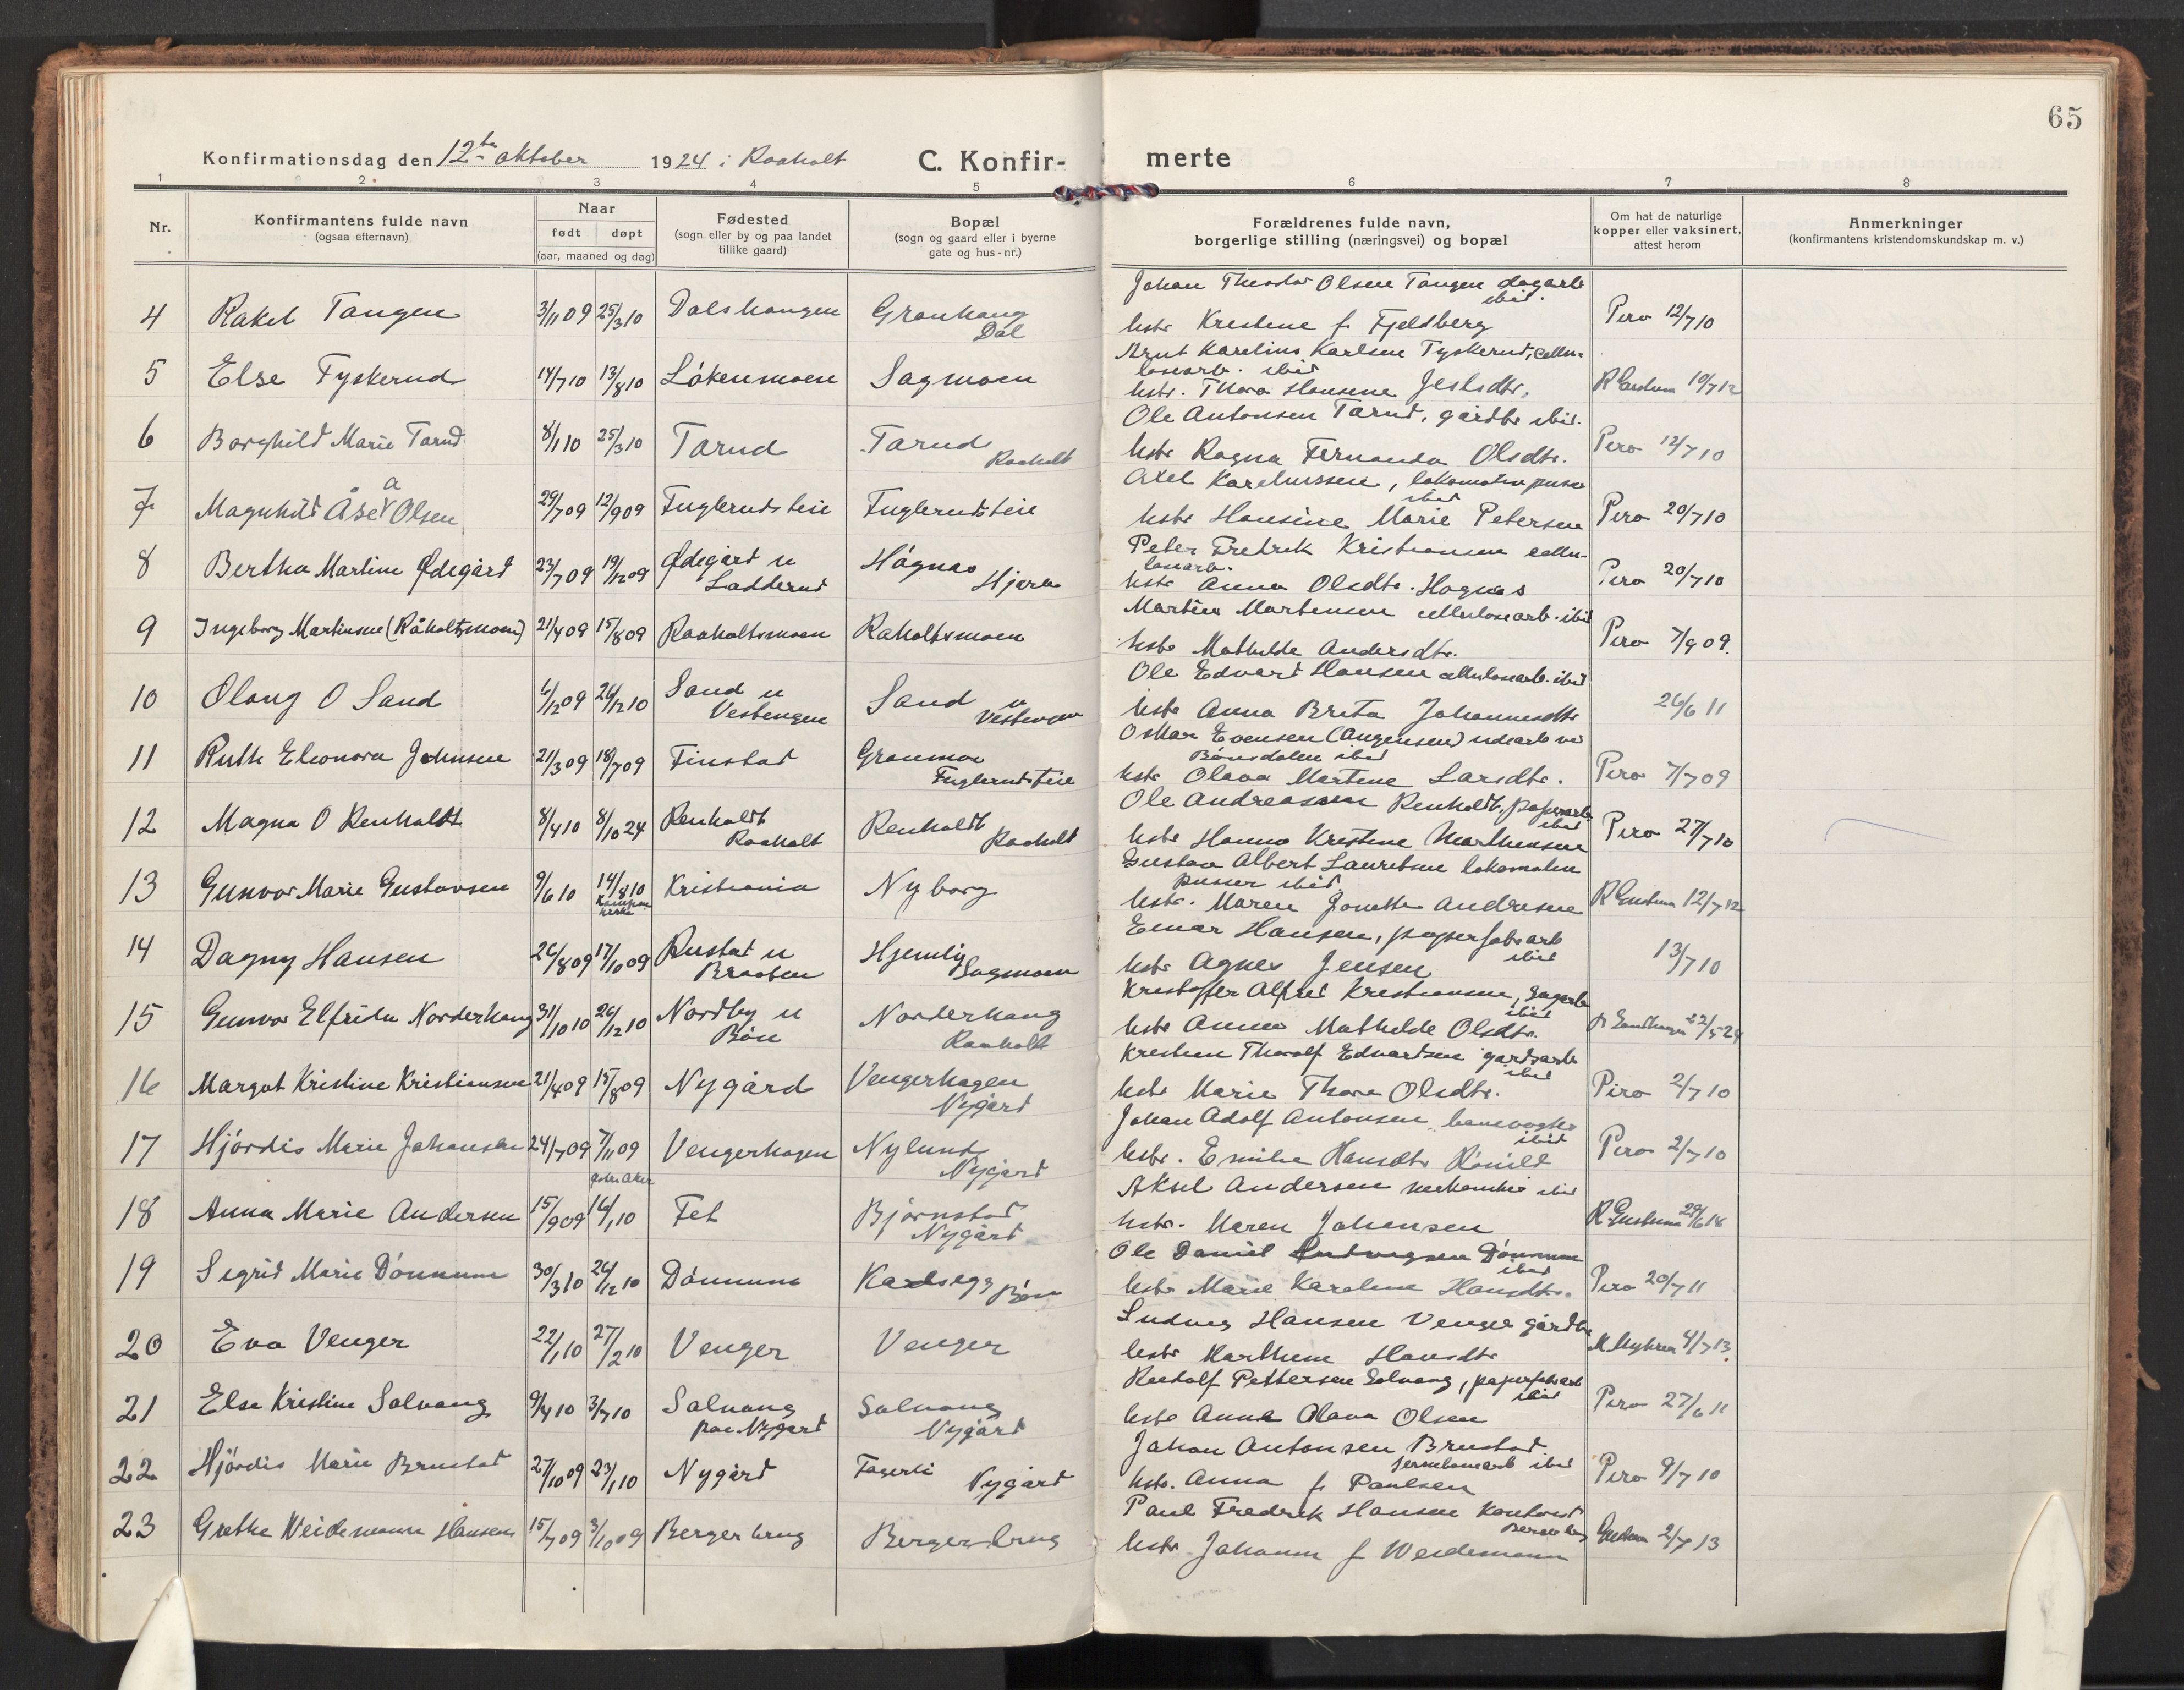 65
Konfirmationsdag den 12te oktober 1924 i Raaholt
C. Konfir-merte
1 2 3 4 5 6 7 8
Nr.
Konfirmantens fulde navn
(ogsaa efternavn)
Naar
født døpt
(aar, maaned og dag)
Fødested
(sogn eller by og paa landet
tillike gaard)
Bopæl
(sogn og gaard eller i byerne
gate og hus-nr.)
Forældrenes fulde navn,
borgerlige stilling (næringsvei) og bopæl
Om hat de naturlige
kopper eller vaksinert,
attest herom
Anmerkninger
(konfirmantens kristendomskundskap m. v.)
Johan Theodor Olsen Tangen dagarb
ibid.
4 Rakel Tangen 3/11 09 25/3 10 Dalshaugen Granhaug
Dal
hstr Kristine f. Fjeldberg Pero 12/7 10
Knut Karelius Karlsen Tyskerud, cellu-
losearb. ibid
5 Else Tyskerud 14/7 10 13/8 10 Løkenmoen Sagmoen
hstr. Thora Hansine 10/7 12
Ole Antonsen Tarud, gårdbr ibid.
6 Borghild Marie Tarud 8/1 10 25/3 10 Tarud Tarud
Raaholt
hstr Ragna Fernanda Olsdtr. Pero 12/7 10
Axel Karelinssen, lokomotivpuss
ibid
7 Magnhild Åse a Olsen 29/7 09 12/9 09 Fuglerudsteie Fuglerudsteie
hstr Hansine Marie Petersen Pero 20/7 10
Peter Fredrik Kristiansen cellu-
losearb.
8 Bertha Martine Ødegård 23/7 09 19/12 09 Ødegård u
Ladderud
Høgnas
Hjera
hstr Anna Olsdtr. Hognas Pero 20/7 10
Martin Martinsen cellulosearb. ibid
9 Ingeborg Martinsen (Råholtsmoen) 21/4 09 15/8 09 Raaholtsmoen Raholtsmoen
hstr Mathilde Andersdtr. Pero 7/9 09.
Ole Edvard Hansen cellulosearb. ibid
10 Olaug O Sand 6/12 09 26/12 10 Sand u
Vestengen
Sand u
Vestengen
hstr Anna Brita Johannesdtr 26/6 11
Oskar Evensen (Augensen) udearb ved
Bönsdalen ibid
11 Ruth Eleonora Johnsen 21/3 09 18/7 09 Finstad Granmo
Fuglerudsteie
hstr Olava Martine Larsdtr. Pero 7/7 09
Ole Andreassen Renholdt, papirarb
ibid
12 Magna O Renholdt 8/4 10 8/10 24 Renholdt
Raaholt
Renholdt
Raaholt
hstr Hanna Kristine Marthinsen Pero 27/7 10
Gustav Albert Lauritsen lokomotiv
pusser ibid.
13 Gunvor Marie Gustavsen 9/6 10 14/8 10
Kampen
kirke
Kristiania Nyborg
hstr. Maren Jonette Andresen 12/7 12
Einar Hansen, papirfabr arb
ibid
14 Dagny Hansen 26/8 09 17/10 09 Rustad u
Braaten
Hjemly
Sagmoen
hstr Agnes Jensen 13/7 10
Kristoffer Alfred Kristiansen, Sagarb
ibid
15 Gunvor Elfrida Norderhaug 31/10 10 26/12 10 Nordby u
Bön
Norderhaug
Raaholt
hstr Anna Mathilde Olsdtr. 22/5 24
Kristian Thoralf Edvardsen gardsarb
ibid
16 Margot Kristine Kristiansen 21/4 09 15/8 09 Nygård Vengerhagen
Nygård
hstr Marie Thora Olsdtr. Piro 2/7 10
Johan Adolf Antonsen banevogter
ibid
17 Hjördis Marie Johansen 24/7 09 7/11 09 Vengerhagen Nylund
Nygård
hstr. Emilie Hansdtr Pero 2/7 10
Aksel Andersen mekaniker ibid
18 Anna Marie Andersen 15/9 09 16/1 10 Fet Bjørnstad
Nygård
hstr. Maren Johansen 29/6 18
Ole Daniel Ludvigsen Dönnum
ibid
19 Sigrid Marie Dönnum 30/3 10 26/12 10 Dönnum Karlsegg Bön
hstr Marie Karoline Hansdtr. Pero 20/7 11
Ludvig Hansen Venger gårdbr
20 Eva Venger 22/1 10 27/2 10 Venger Venger
hstr Marthine Hansdtr 4/7 13.
Rudolf Pettersen Solvang, papirfabr arb
ibid
21 Else Kristine Solvang 9/4 10 3/7 10 Solvang
paa Nygård
Solvang
Nygård
hstr Anna Olava Olsen Pero 27/6 11
Johan Antonsen Brustad
ibid
22 Hjördis Marie Brustad 27/10 09 23/1 10 Nygård Fagerli
Nygård
hstr. Anna f Paulsen Pero 9/7 10
Paul Fredrik Hansen kontorist
Berger brug
23 Grethe Weidemann Hansen 15/7 09 3/10 09 Berger brug Berger brug
hstr Johanne f Weidemann 2/7 13